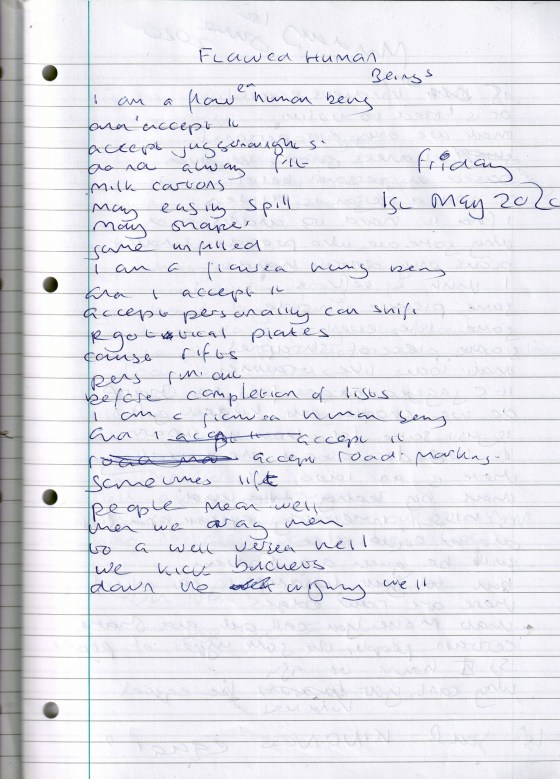 Flawed Human
Beings
I am a flawed human being
and accept it
accept juggernaughts
do not always fit
Friday
milk cartons
may easily spill
1st May 2020
may shape
some unfilled
I am a flawed human being
and I accept it
accept personality can shift
egotistical plates
cause rifts
pens run out
before completion of lists
I am a flawed human being
and I accept it
accept road marking
Sometimes lift
people mean well
when we drag men
to a well versed hell
we kick buckets
down the wishing well